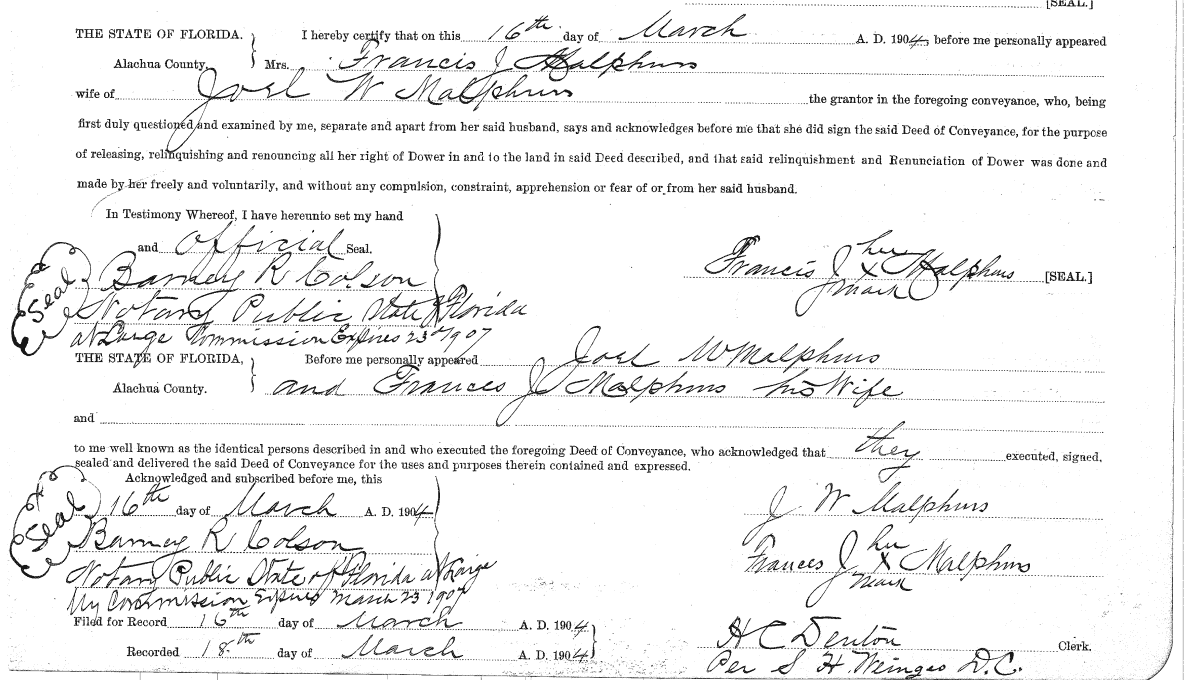 [SEAL.]
THE STATE OF FLORIDA. I hereby certify that on this 16th day of March A. D. 1904, before me personally appeared
Alachua County. Mrs. Francis J Malphurs
wife of Joel W Malphurs the grantor in the foregoing conveyance, who, being
first duly questioned and examined by me, separate and apart from her said husband, says and acknowledges before me that she did sign the said Deed of Conveyance, for the purpose
of releasing, relinquishing and renouncing all her right of Dower in and to the land in said Deed described, and that said relinquishment and Renunciation of Dower was done and
made by her freely and voluntarily, and without any compulsion, constraint, apprehension or fear of or from her said husband.
In Testimony Whereof, I have hereunto set my hand
and Official Seal.
Seal
Barney R Colson
Notary Public State of Florida
at Large Commission Expires 23d 1907
her
Francis J X Malphurs [SEAL.]
mark
THE STATE OF FLORIDA, Before me personally appeared Joel W Malphurs
Alachua County. and Frances J Malphurs his Wife
and
to me well known as the identical persons described in and who executed the foregoing Deed of Conveyance, who acknowledged that they executed, signed,
sealed and delivered the said Deed of Conveyance for the uses and purposes therein contained and expressed.
Acknowledged and subscribed before me, this
16th day of March A. D. 1904
Seal
Barney R Colson
Notary Public State of Florida at Large
My Commission Expires March 23 1907
J W Malphurs
her
Frances J X Malphurs
mark
Filed for Record 16th day of March A. D. 1904
Recorded 18th day of March A. D. 1904
H C Denton Clerk.
Per S H Wienges D.C.